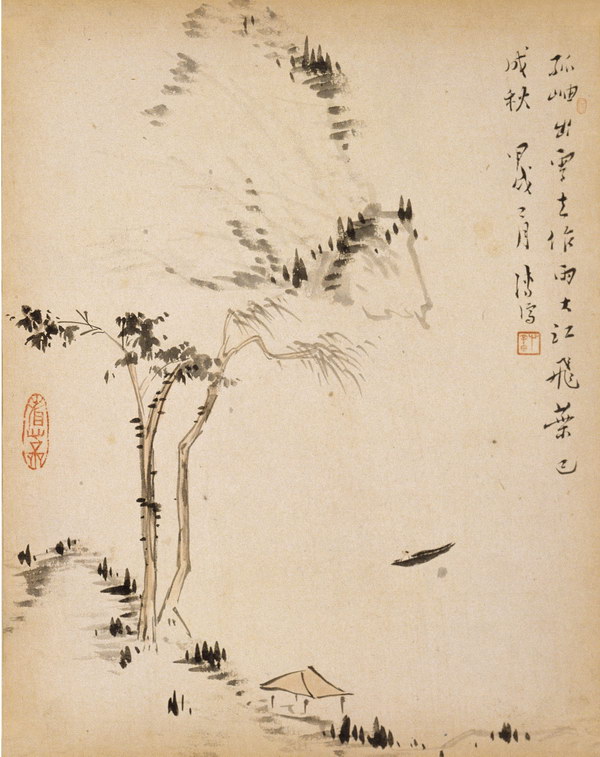 孤岫出雲去作雨大江飛葉已
成秋 甲戌二月